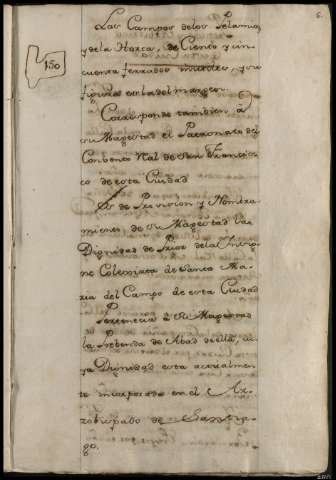 6.
150
Las Campos de los Pelamios
y de la Horca, de Ciento y cin-
cuenta ferrados mistos, y su
figura es la del margen.
Corresponde tambien à
su Magestad el Patronato del
Convento Rl. de San Francis-
co de esta Ciudad
Es de Provision y Nombra
miento de su Magestad la
Dignidad de Prior de la Insig-
ne Colegiata de Santa Ma-
ria del Campo de esta Ciudad
Pertenecia à su Magestad
la Prebenda de Abad de ella, cu
ya Dignidad esta actualmen
te incorporada en el Ar-
zobispado de Santia-
go.